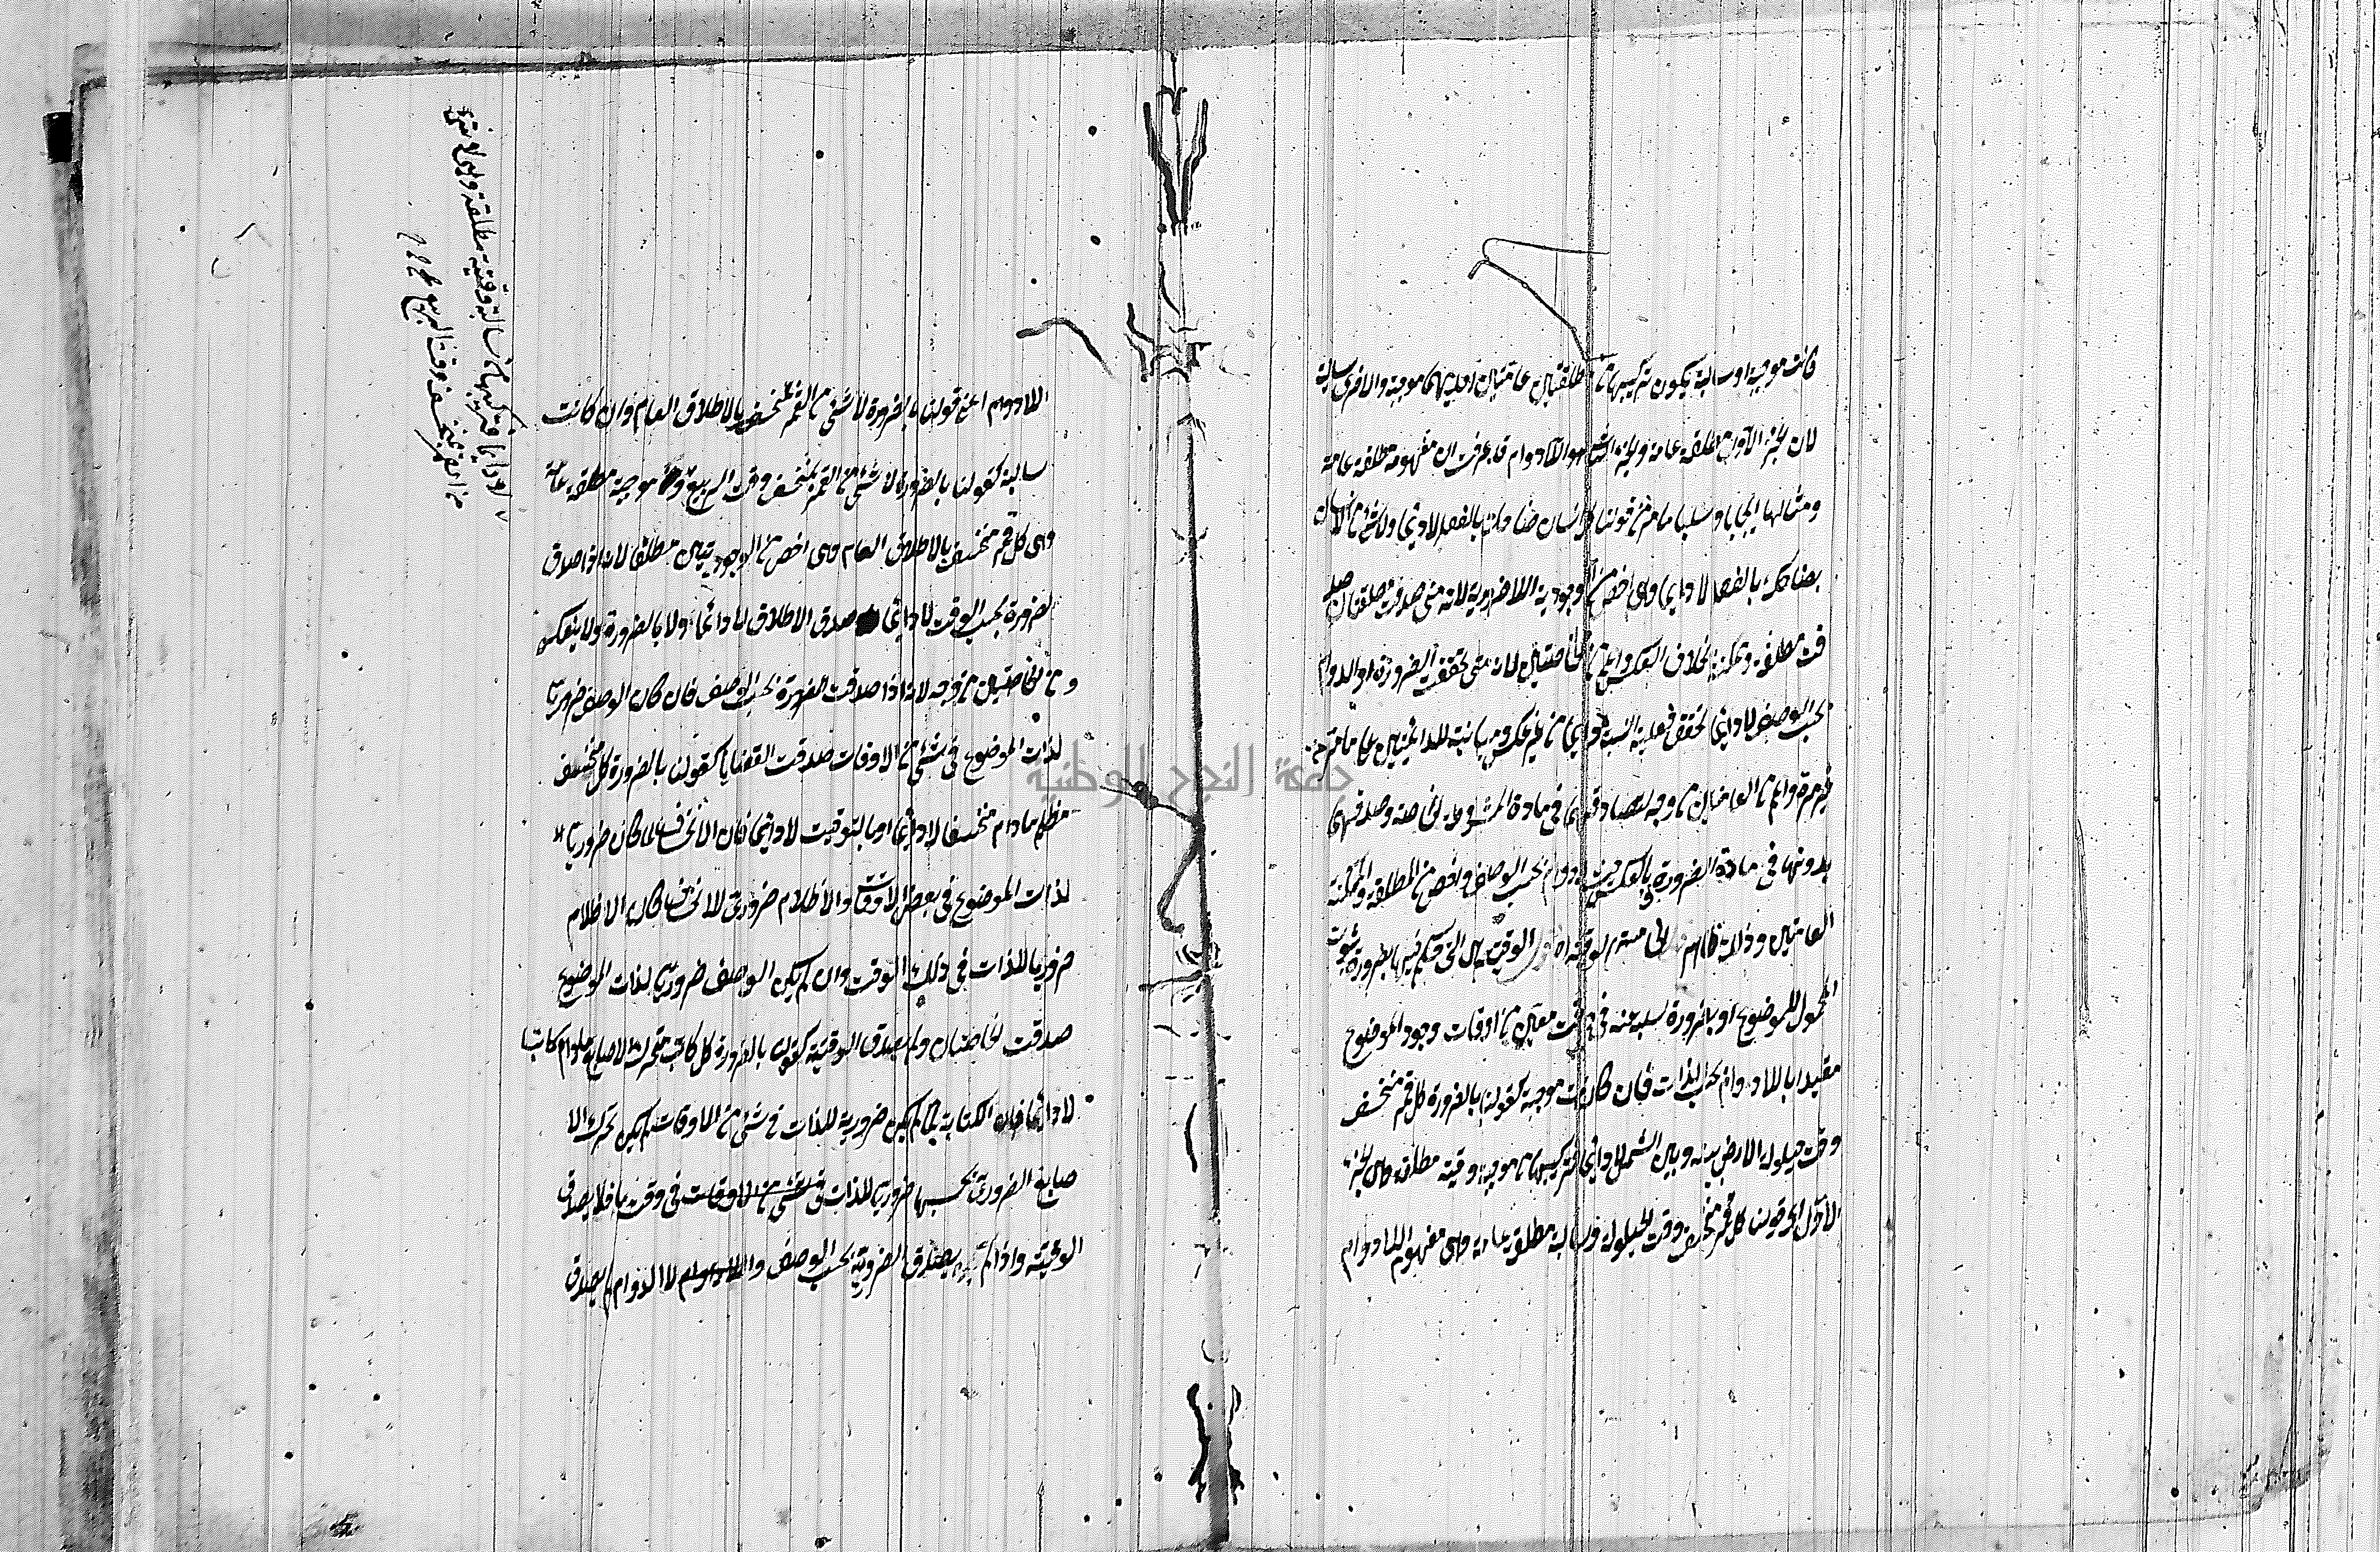 كانت موجبة او سالبة يكون تركيبها من مطلقتين عامتين احديهما موجبة والاخرى سالبة
لان الجزء الاول مطلقة عامة والجزء الثاني هو اللادوام قد عرفت ان مفهومه مطلقة عامة
ومثالها ايجابا وسلبا ما مر من قولنا كل انسان ضاحك بالفعل لا دائما ولا شئ من الانسان
بضاحك بالفعل لا دايما وهى اخص من الوجودية اللاضرورية لانه متى صدقت مطلقتان صد
قت مطلقة وممكنة بخلاف العكس واعم من الخاصتين لانه متى تحققت الضرورة او الدوام
بحسب الوصف لا دايما تحقق فعلية النسبة لا دايما من غير عكس ومباينة للدائمتين على ما مر
غير مرة واعم من العامتين من وجه لتصادقهما فى مادة المشروطة الخاصة وصدقهما
بدونها فى مادة الضرورة وبالعكس حيث لا دوام بحسب الوصف واخص من المطلقة والممكنة
العامتين وذلك ظاهر الوقتية هى التى حكم فيها بضرورة ثبوت
المحمول للموضوع او بضرورة سلبه عنه فى وقت معين من اوقات وجود الموضوع
مقيدا باللادوام بحسب الذات فان كانت موجبة كقولنا بالضرورة كل قمر منخسف
وقت حيلولة الارض بينه وبين الشمس لا دائما فتركيبها من موجبة وقتية مطلقة وهى الجزء
الاول اى قولنا كل قمر منخسف وقت الحيلولة وسالبة مطلقة عامة وهى مفهوم اللادوام
اللادوام اعنى قولنا بالضرورة لا شئ من القمر بمنخسف بالاطلاق العام وان كانت
سالبة كقولنا بالضرورة لا شئ من القمر بمنخسف وقت التربيع موجبة مطلقة عامة
وهى كل قمر منخسف بالاطلاق العام وهى اخص من الوجوديتين مطلقا لانه اذا صدق
لضرورة بحسب الوقت لا دائما صدق الاطلاق لا دائما ولا بالضرورة ولا ينعكس
ومن الخاصتين من وجه لانه اذا صدقت الضرورة بحسب الوصف فان كان الوصف ضروريا
لذات الموضوع فى شئ من الاوقات صدقت القضايا كقولنا بالضرورة كل منخسف
مظلم ما دام منخسفا لا دائما او بالتوقيت لا دائما فان الانخساف لما كان ضروريا
لذات الموضوع فى بعض الاوقات والاظلام ضرورى للانخساف كان الاظلام
ضروريا للذات فى ذلك الوقت وان لم يكن الوصف ضروريا لذات الموضوع
صدقت الخاصتان ولم يصدق الوقتية كقولنا بالضرورة كل كاتب متحرك الاصابع ما دام كاتبا
لا دائما فان الكتابة لما لم يكن ضرورية للذات فى شئ من الاوقات لم يكن تحرك الا
صابع الضرورى بحسبها ضروريا للذات فى شئ من الاوقات فى وقت ما فلا يصدق
الوقتية واذا لم يصدق الضرورية بحسب الوصف واللادوام لا الدوام لم يصدق
لا دايما فتركيبها من سالبة وقتية مطلقة وهى لا شئ
من القمر بمنخسف وقت التربيع
جامعة النجاح الوطنية